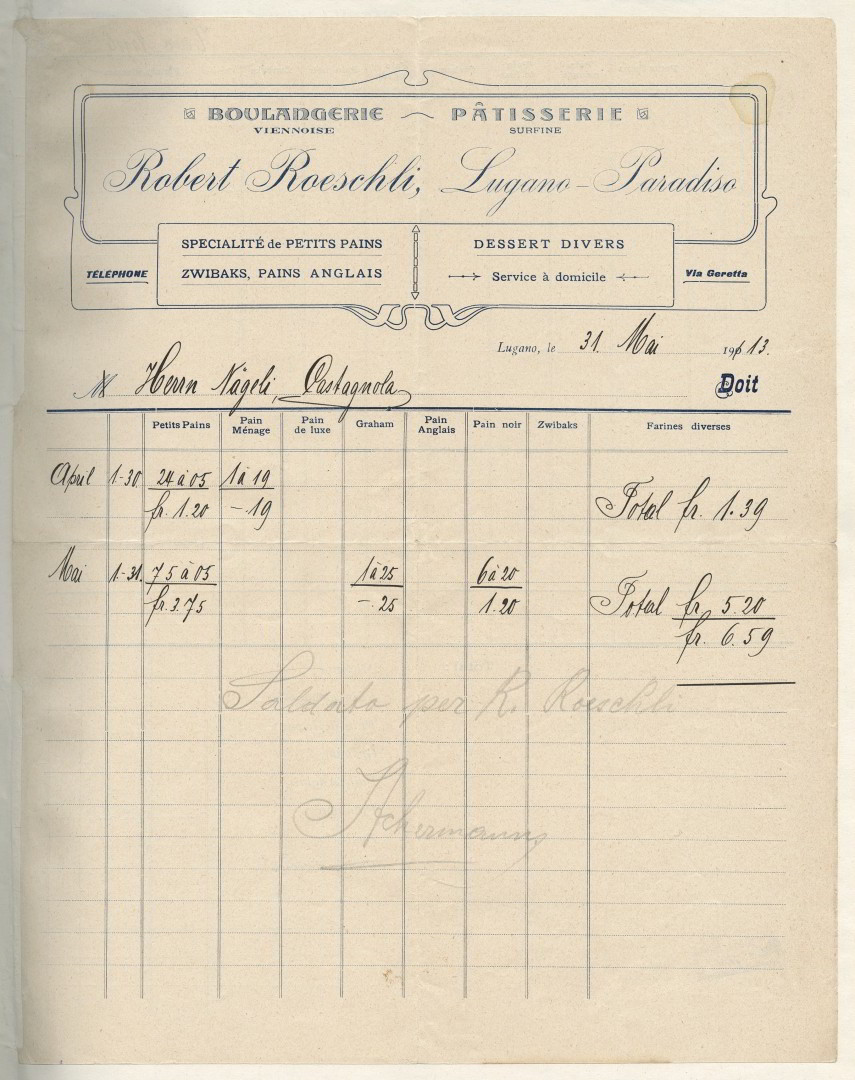 BOULANGERIE PÂTISSERIE
VIENNOISE SURFINE
Robert Roeschli, Lugano-Paradiso
SPECIALITÉ de PETITS PAINS DESSERT DIVERS
TÉLÉPHONE ZWIBAKS, PAINS ANGLAIS Service à domicile Via Geretta
Lugano, le 31. Mai 1913.
M Herrn Nägeli, Castagnola Doit
Petits Pains Pain Ménage Pain de luxe Graham Pain Anglais Pain noir Zwibaks Farines diverses
April 1-30. 24 à 05 1 à 19
fr. 1.20 -.19 Total fr. 1.39
Mai 1-31. 75 à 05 1 à 25 6 à 20
fr. 3.75 -.25 1.20 Total fr. 5.20
fr. 6.59
Saldato per R. Roeschli
Achermann